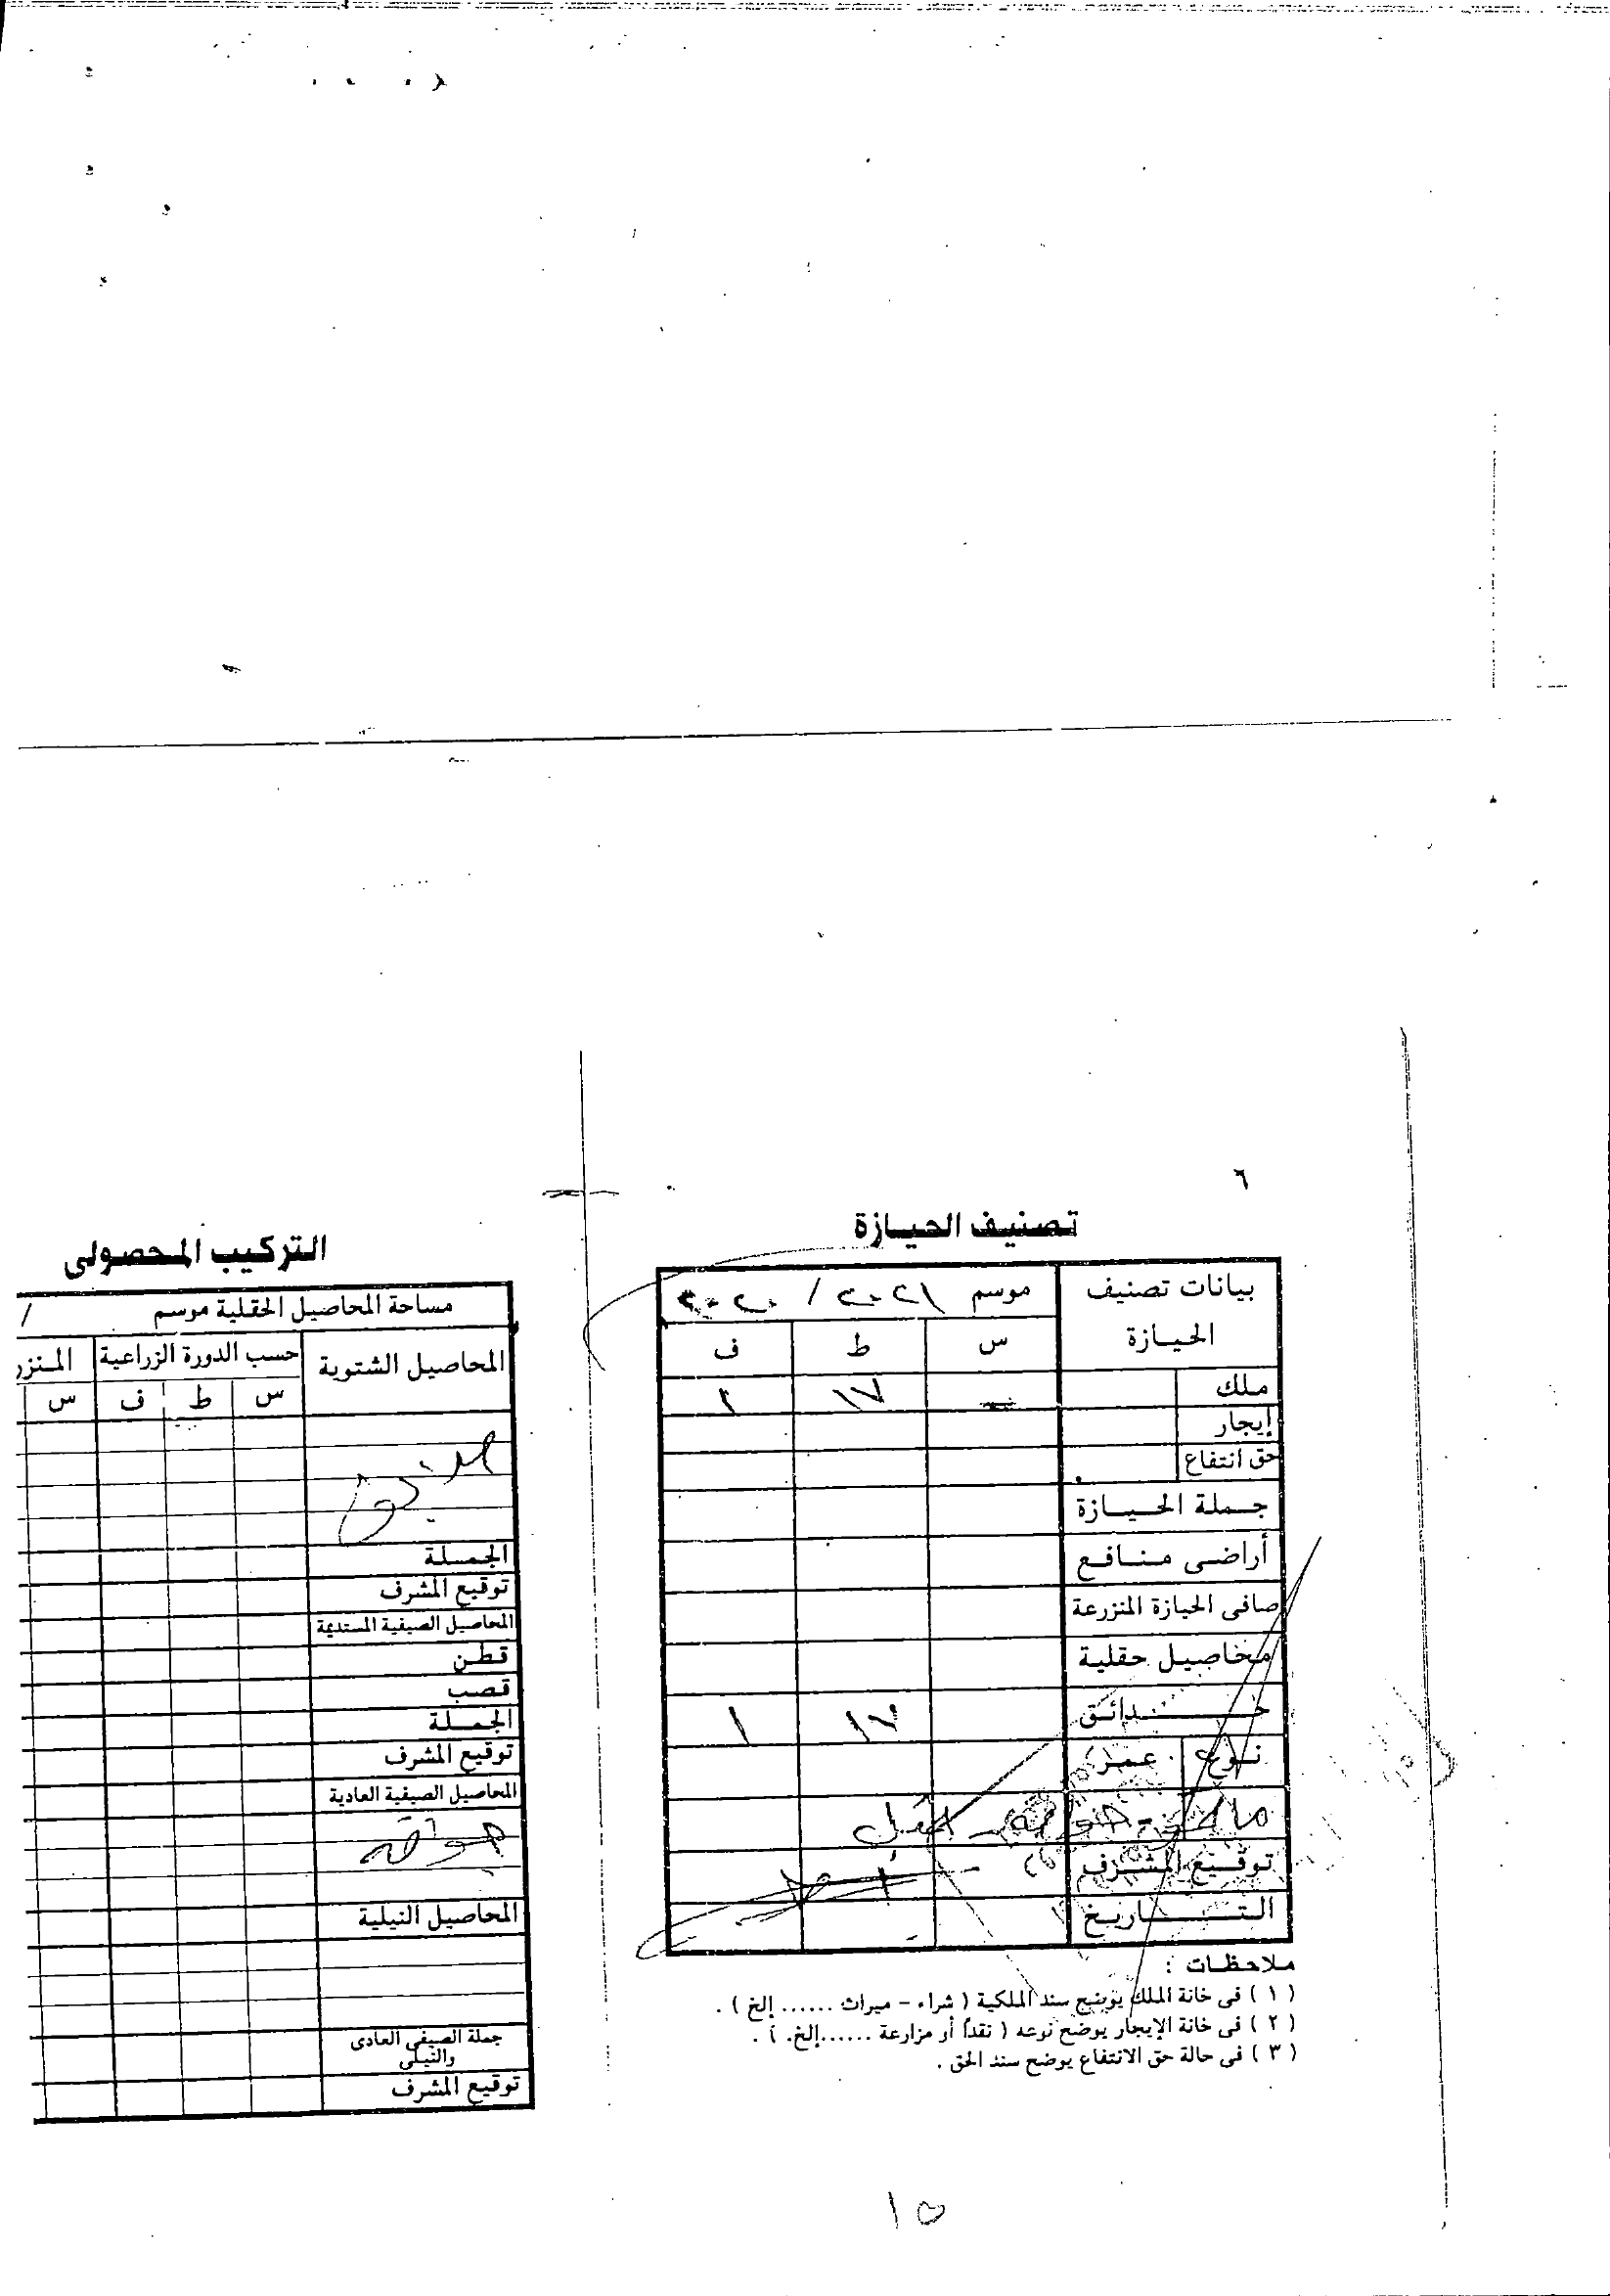 ٦
تصنيف الحيازة
بيانات تصنيف الحيازة
موسم ٢٠٢١ / ٢٠٢٠
س ط ف
ملك ١٧ ١
إيجار
حق انتفاع
جملة الحيازة
أراضى منافع
صافى الحيازة المنزرعة
محاصيل حقلية
حدائق ١٧ ١
نوع عمر
توقيع المشرف
التاريخ
ملاحظات :
( ١ ) فى خانة الملك يوضح سند الملكية ( شراء - ميراث ...... إلخ ) .
( ٢ ) فى خانة الإيجار يوضح نوعه ( نقداً أو مزارعة ......إلخ. ) .
( ٣ ) فى حالة حق الانتفاع يوضح سند الحق .
التركيب المحصولى
مساحة المحاصيل الحقلية موسم /
المحاصيل الشتوية حسب الدورة الزراعية المنزر
س ط ف س
الجملة
توقيع المشرف
المحاصيل الصيفية المستديمة
قطن
قصب
الجملة
توقيع المشرف
المحاصيل الصيفية العادية
المحاصيل النيلية
جملة الصيفى العادى
والنيلى
توقيع المشرف
١٥